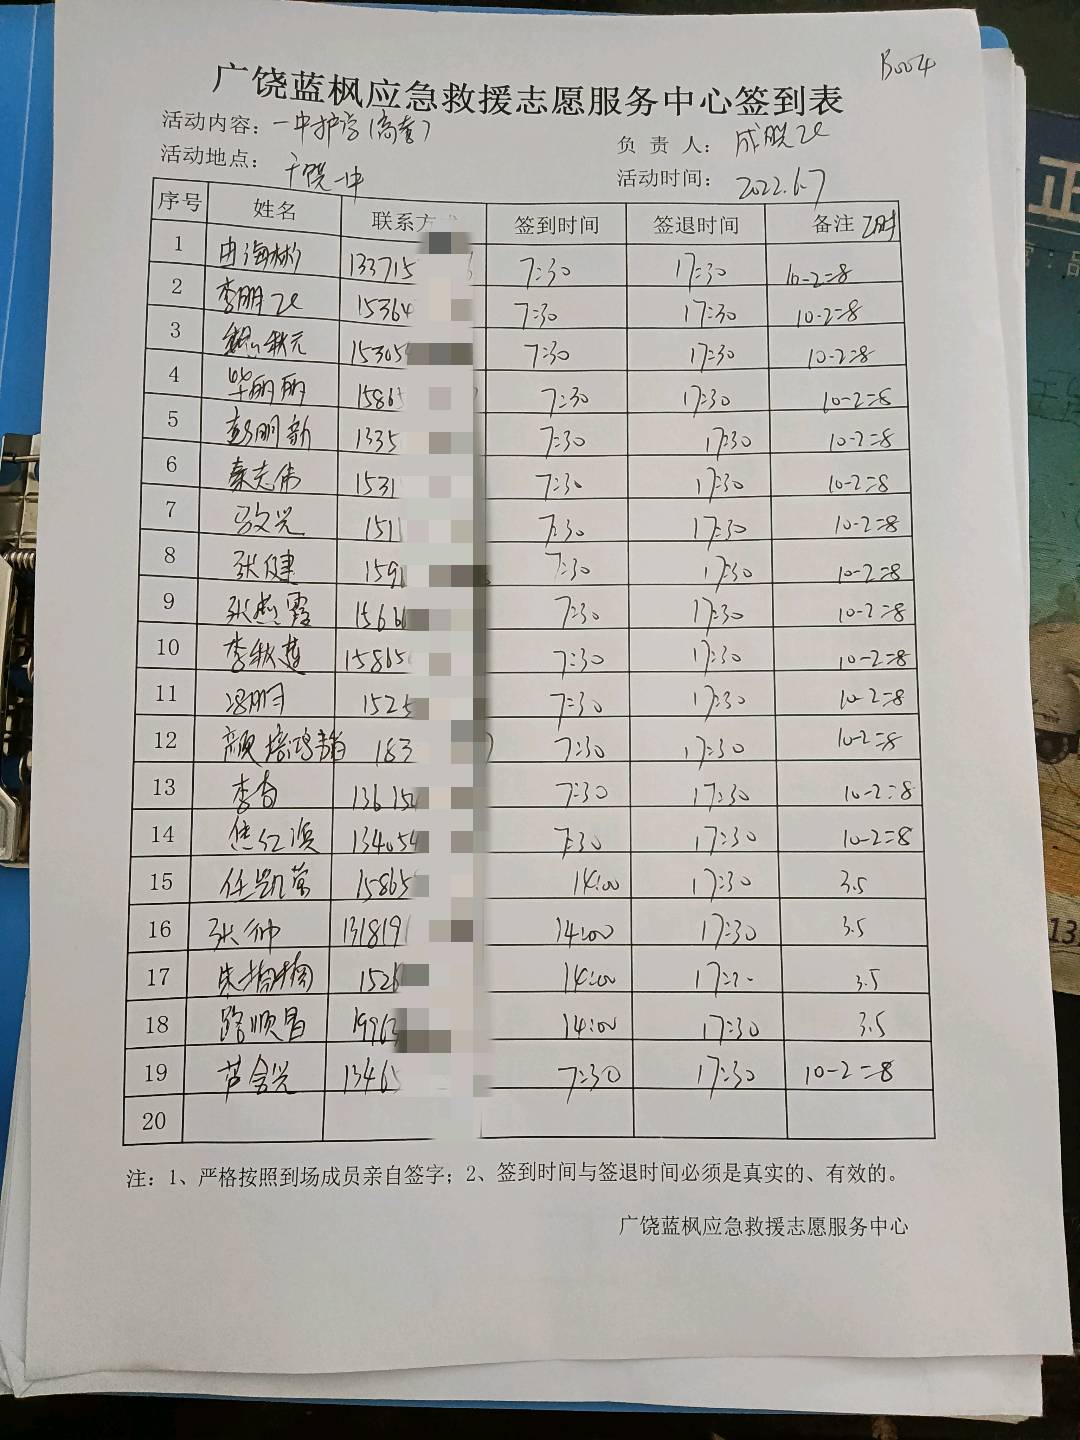 B004
广饶蓝枫应急救援志愿服务中心签到表
活动内容：一中护学（高考） 负 责 人：
活动地点：广饶一中 活动时间：2022.6.7
序号 姓名 联系方 签到时间 签退时间 备注
1 由海彬 133715 7:30 17:30 10-2=8
2 李明 15364 7:30 17:30 10-2=8
3 秋元 15305 7:30 17:30 10-2=8
4 毕丽丽 15865 7:30 17:30 10-2=8
5 彭明新 1335 7:30 17:30 10-2=8
6 秦志伟 1531 7:30 17:30 10-2=8
7 马文兴 151 7:30 17:30 10-2=8
8 张健 159 7:30 17:30 10-2=8
9 张燕霞 1566 7:30 17:30 10-2=8
10 李秋莲 15865 7:30 17:30 10-2=8
11 1525 7:30 17:30 10-2=8
12 颜培鸿 183 7:30 17:30 10-2=8
13 李杏 136154 7:30 17:30 10-2=8
14 焦红滨 134054 7:30 17:30 10-2=8
15 任凯荣 15865 14:00 17:30 3.5
16 张帅 131819 14:00 17:30 3.5
17 朱楠楠 1526 14:00 17: 3.5
18 路顺昌 1996 14:00 17:30 3.5
19 芦会兴 13465 7:30 17:30 10-2=8
20
注：1、严格按照到场成员亲自签字；2、签到时间与签退时间必须是真实的、有效的。
广饶蓝枫应急救援志愿服务中心
正